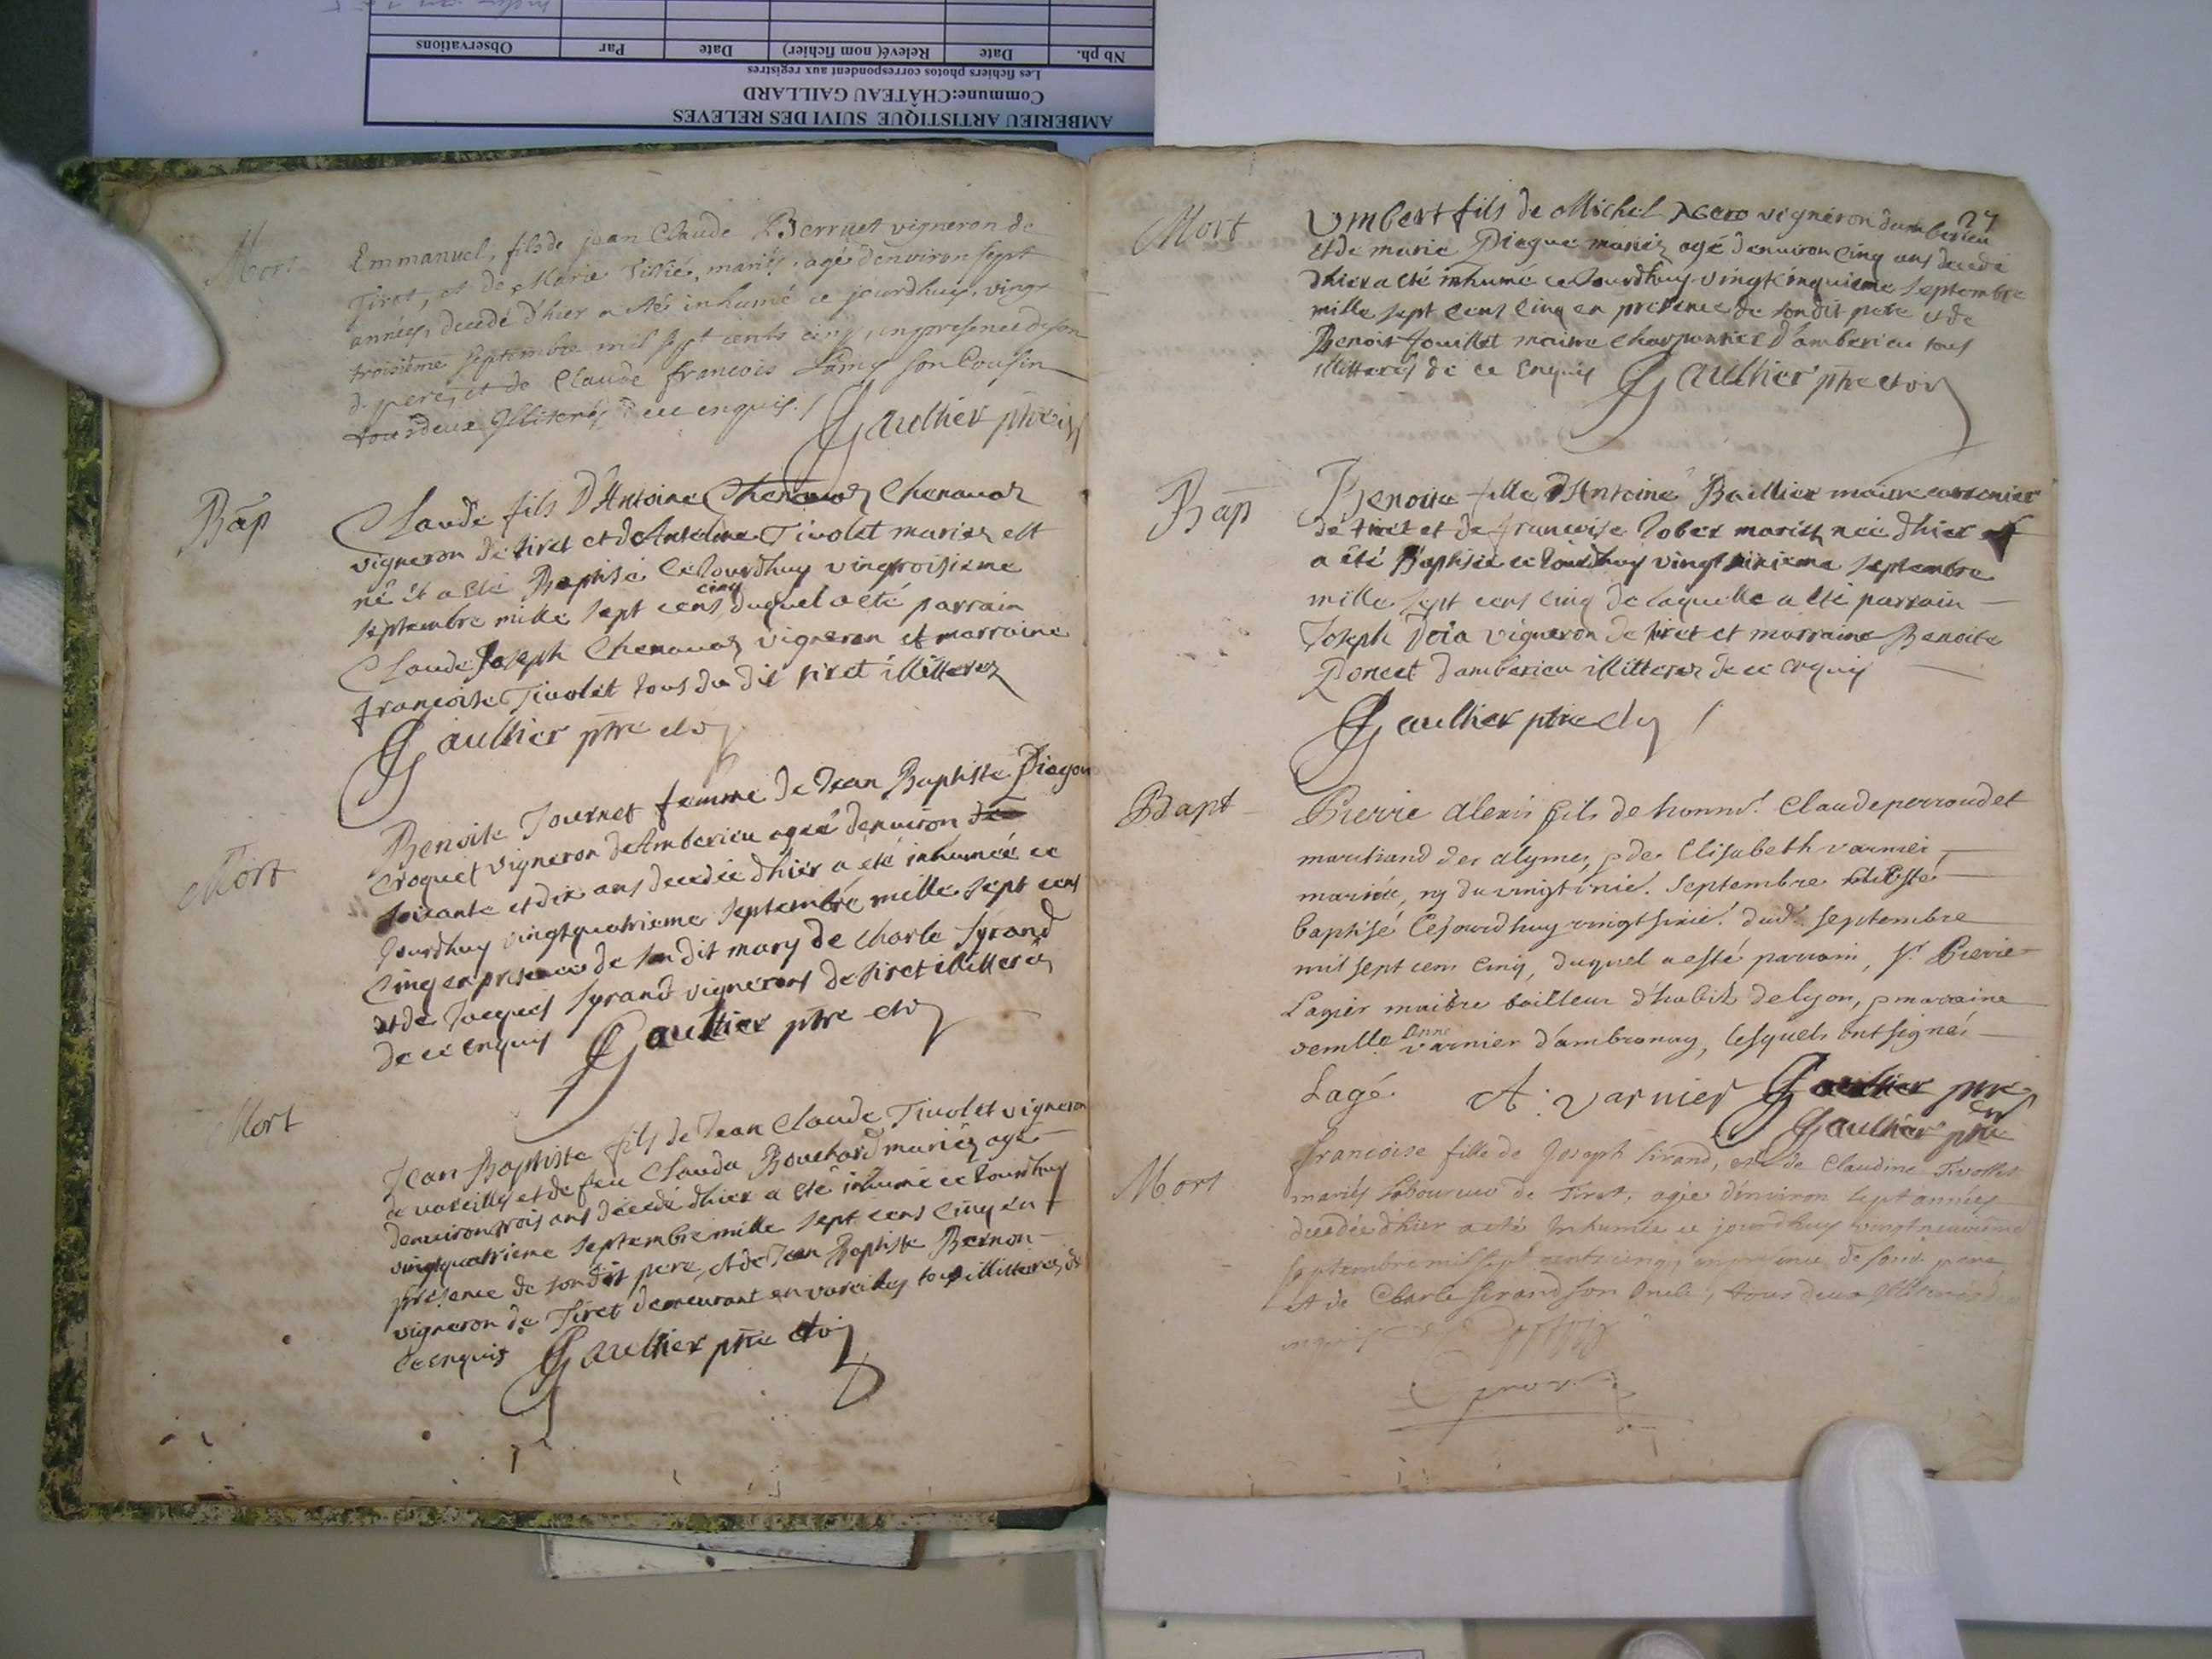 AMBERIEU ARTISTIQUE SUIVI DES RELEVES
Commune:CHÂTEAU GAILLARD
Les fichiers photos correspondent aux registres
Nb ph. Date Relevé (nom fichier) Date Par Observations
Mort
Emmanuel, fils de jean Claude Berruet vigneron de
Tiret, et de Marie Tissié, mariés, agé d'environ sept
années, decedé d'hier a été inhumé ce jourdhuy, vingt
troisième septembre mil sept cents cinq, en presence de son
d. pere, et de Claude francois Lamy son Cousin
tous deux Illiterés de ce enquis./
Gaulhier ptre
Bap
Claude fils D'Antoine Chenavaz Chenavaz
vigneron de tiret et de Antelme Tivolet mariez est
né et a eté Baptisé ce Jourdhuy vingtroisieme
septembre mille sept cens cinq duquel a eté parrain
Claude Joseph Chenavaz vigneron et marraine
francoise Tivolet tous du dit tiret illitterez
Gaulhier ptre
Mort
Benoite Journet femme de Jean Baptiste Piegon
Croquet vigneron de Amberieu ageé denviron de
soixante et dix ans decedée dhier a eté inhumée ce
Jourdhuy vingtquatrieme septembre mille sept cens
Cinq en presence de son dit mary de Charle Syrand
et de Jacques Syrand vignerons de tiret illitterés
de ce enquis Gaulhier ptre
Mort
Jean Baptiste fils de Jean Claude Tivolet vigneron
de vareilles et de feu Clauda Bouchard mariez agé
denviron trois ans decedé dhier a eté inhumé ce Jourdhuy
vingtquatrieme septembre mille sept cens Cinq en
presence de son dit pere, et de Jean Baptiste Bernon
vigneron de Tiret demeurant en vareilles tous illitterez de
ce enquis Gaulhier ptre
27
Mort
Umbert fils de Michel vigneron damberieu
et de marie Piegue mariez agé denviron Cinq ans decedé
dhier a eté inhumé ce Jourdhuy vingtcinquieme septembre
mille sept cens Cinq en presence de son dit pere et de
Benoit Jouillet maitre charpantier d'amberieu tous
illitterés de ce Enquis Gaulhier ptre
Bap
Benoite fille D'Antoine Baillier maitre
de tiret et de francoise Jober mariez neé dhier et
a été Baptisée ce Jourdhuy vingt sixieme septembre
mille sept cens Cinq de laquelle a eté parrain
Joseph Doia vigneron de tiret et marraine Benoite
Poncet damberieu illitterez de ce enquis
Gaulhier ptre
Bapt
Pierre Alexis fils de honnr. Claude perroud et
marchand des alymes, & de Elisabeth varnier,
mariés, nÿ du vingt septembre
baptisé Cejourdhuy vingt sixie. dud. septembre
mil sept cens Cinq, duquel a esté parrain, sr. Pierre
Lagier maitre tailleur d'habit de lyon, & maraine
demlle. Anne varnier d'ambronay, lesquels ont signés
Lagé A. varnier Gaulhier ptre
Gaulhier ptre
Mort
francoise fille de Joseph Sirand, et de Claudine Tivollet
mariés Laboureur de Tiret, agée d'environ sept années
decedée d'hier a eté Inhumée ce jourdhuy vingtneuvieme
septembre mil sept cents cinq, en presence de sond. pere
et de Charle Sirand son Oncle, tous deux Illiterés de